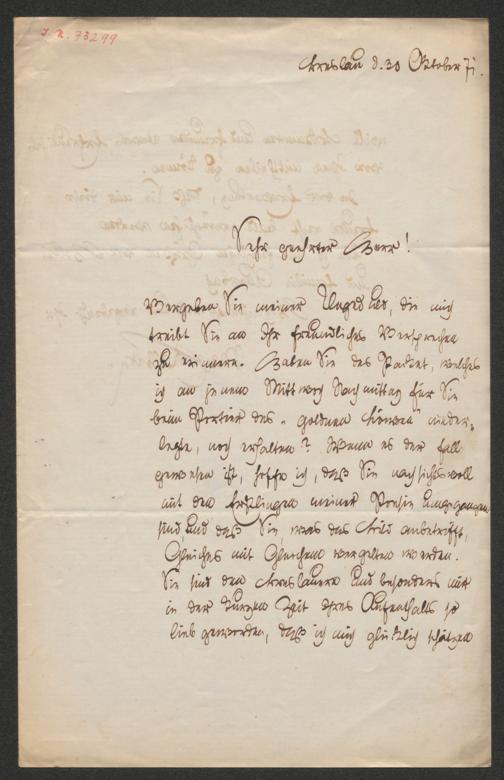 J. N. 73299
Breslau d. 30 Oktober 71.
Sehr geehrter Herr!
Vergeben Sie meiner Ungeduld, die mich
treibt Sie an Ihr freundliches Versprechen
zu erinnern. Haben Sie das Packet, welches
ich an jenem Mittwoch Nachmittag für Sie
beim Portier des „goldnen Löwen nieder-
legte, noch erhalten? Wenn es der Fall
gewesen ist, hoffe ich, daß Sie nachsichtsvoll
mit den Erstlingen meiner Poesie umgegangen
sind und daß Sie, was das Bild anbetrifft,
Gleiches mit Gleichem vergelten werden.
Sie sind den Breslauern und besonders mir
in der kurzen Zeit Ihres Aufenthalts so
lieb geworden, daß ich mich glücklich schätzen